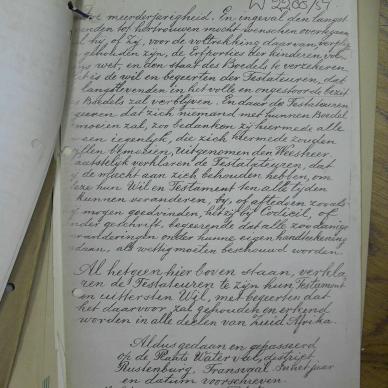 W 2266/54
meerderjarigheid. En ingeval den langst
levenden tot hertrouwen mocht wenschen overtegaan
hij of Zij, voor de voltrekking daarvan verplig
zijn, de Erfportier der kinderen vol-
wet, en den staat des Boedels te verzekeren
is de wil en begeerten der Testateuren, dat
langstlevenden in het volle en ongestoorde bezit
Boedels zal verblijven. En daar de Testateuren
begeeren dat zich niemand met hunnen Boedel
bemoeien zal, zoo bedanken zij hiermede alle
en een iegenlijk, die zich hiermede zouden
willen bemoeien, uitgenomen den Weesheer.
Laatstelijk verklaren de Testateuren, dat
zij de macht aan zich behouden hebben, om
deze hun Wil en Testament ten alle tijden
kunnen veranderen, by of aftedien zooals
zij mogen goedvinden, hetzij by Codicil, of
ander geschrift, begeerende dat alle zoodanige
veranderingen onder hunne eigen handteekening
gedaan, als wettig moeten beschouwd worden
Al hetgeen hier boven staan, verkla
ren de Testateuren te zijn hun Testament
en uittersten Wil, met begeerten dat
het daarvoor zal gehouden en erkend
worden in alle deelen van Zuid Afrika.
Aldus gedaan en gepasseerd
op de Plaats Waterval, district,
Rustenburg, Transvaal. In het jaar
en datum voorschreven.